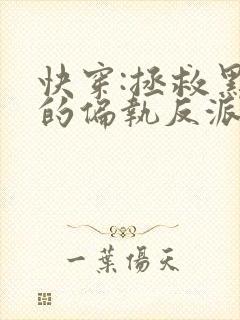 快穿:拯救黑
的偏執反派
一葉傷天